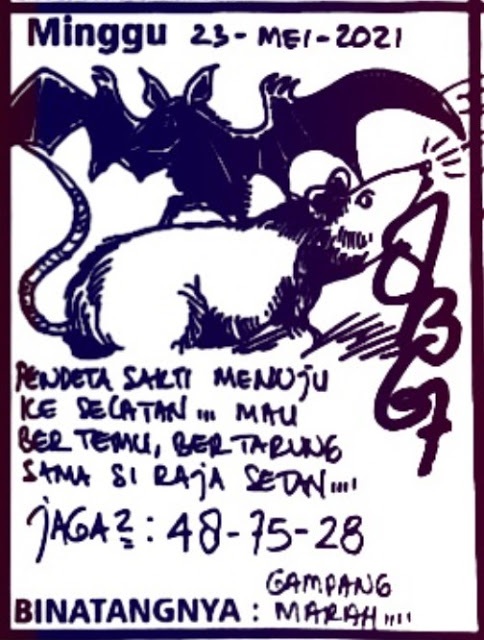 Minggu 23-MEI-2021
8
3
6
7
PENDETA SAKTI MENUJU
KE SELATAN ... MAU
BERTEMU, BERTARUNG
SAMA SI RAJA SETAN ....
JAGA2 : 48-75-28
GAMPANG
BINATANGNYA : MARAH ....